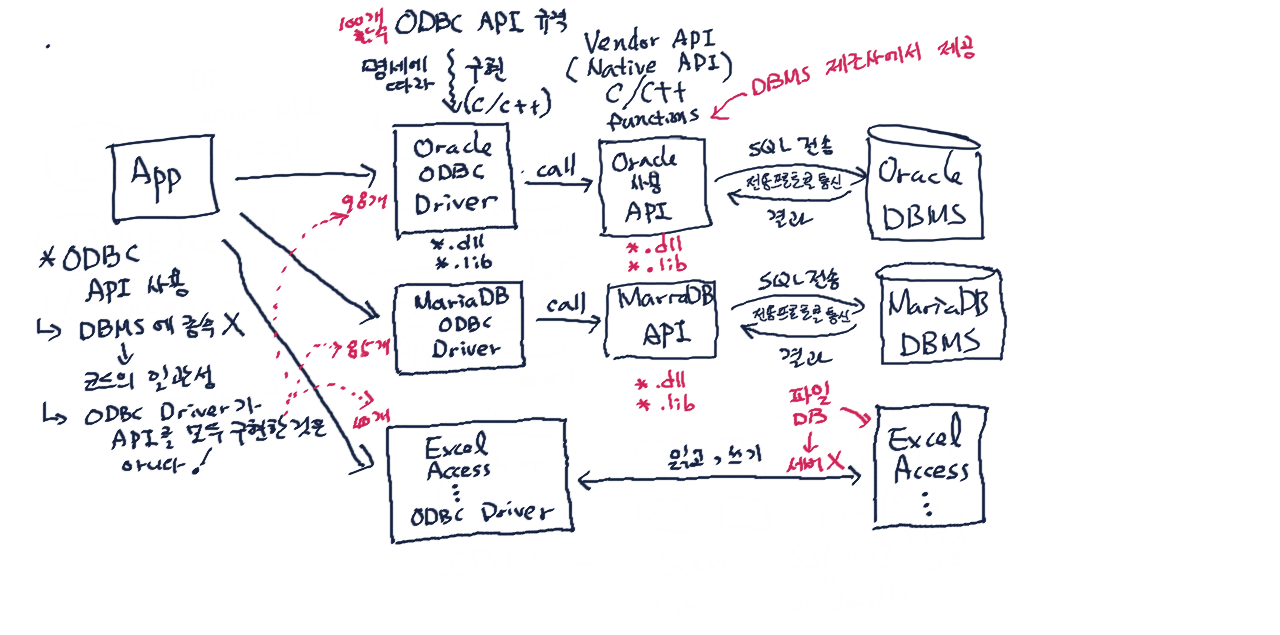 100개 함수
ODBC API 규격
명세에
따라
구현
(C/C++)
Vendor API
(Native API)
C/C++
functions
DBMS 제조사에서 제공
App
Oracle
ODBC
Driver
98개
*.dll
*.lib
call
Oracle
사용
API
*.dll
*.lib
SQL 전송
전용프로토콜 통신
결과
Oracle
DBMS
* ODBC
API 사용
↳ DBMS에 종속 X
↓
코드의 일관성
↳ ODBC Driver가
API를 모두 구현한 것은
아니다!
MariaDB
ODBC
Driver
85개
call
MariaDB
API
*.dll
*.lib
SQL 전송
전용프로토콜 통신
결과
MariaDB
DBMS
Excel
Access
⋮
ODBC Driver
읽고, 쓰기
파일
DB
↓
서버 X
Excel
Access
⋮